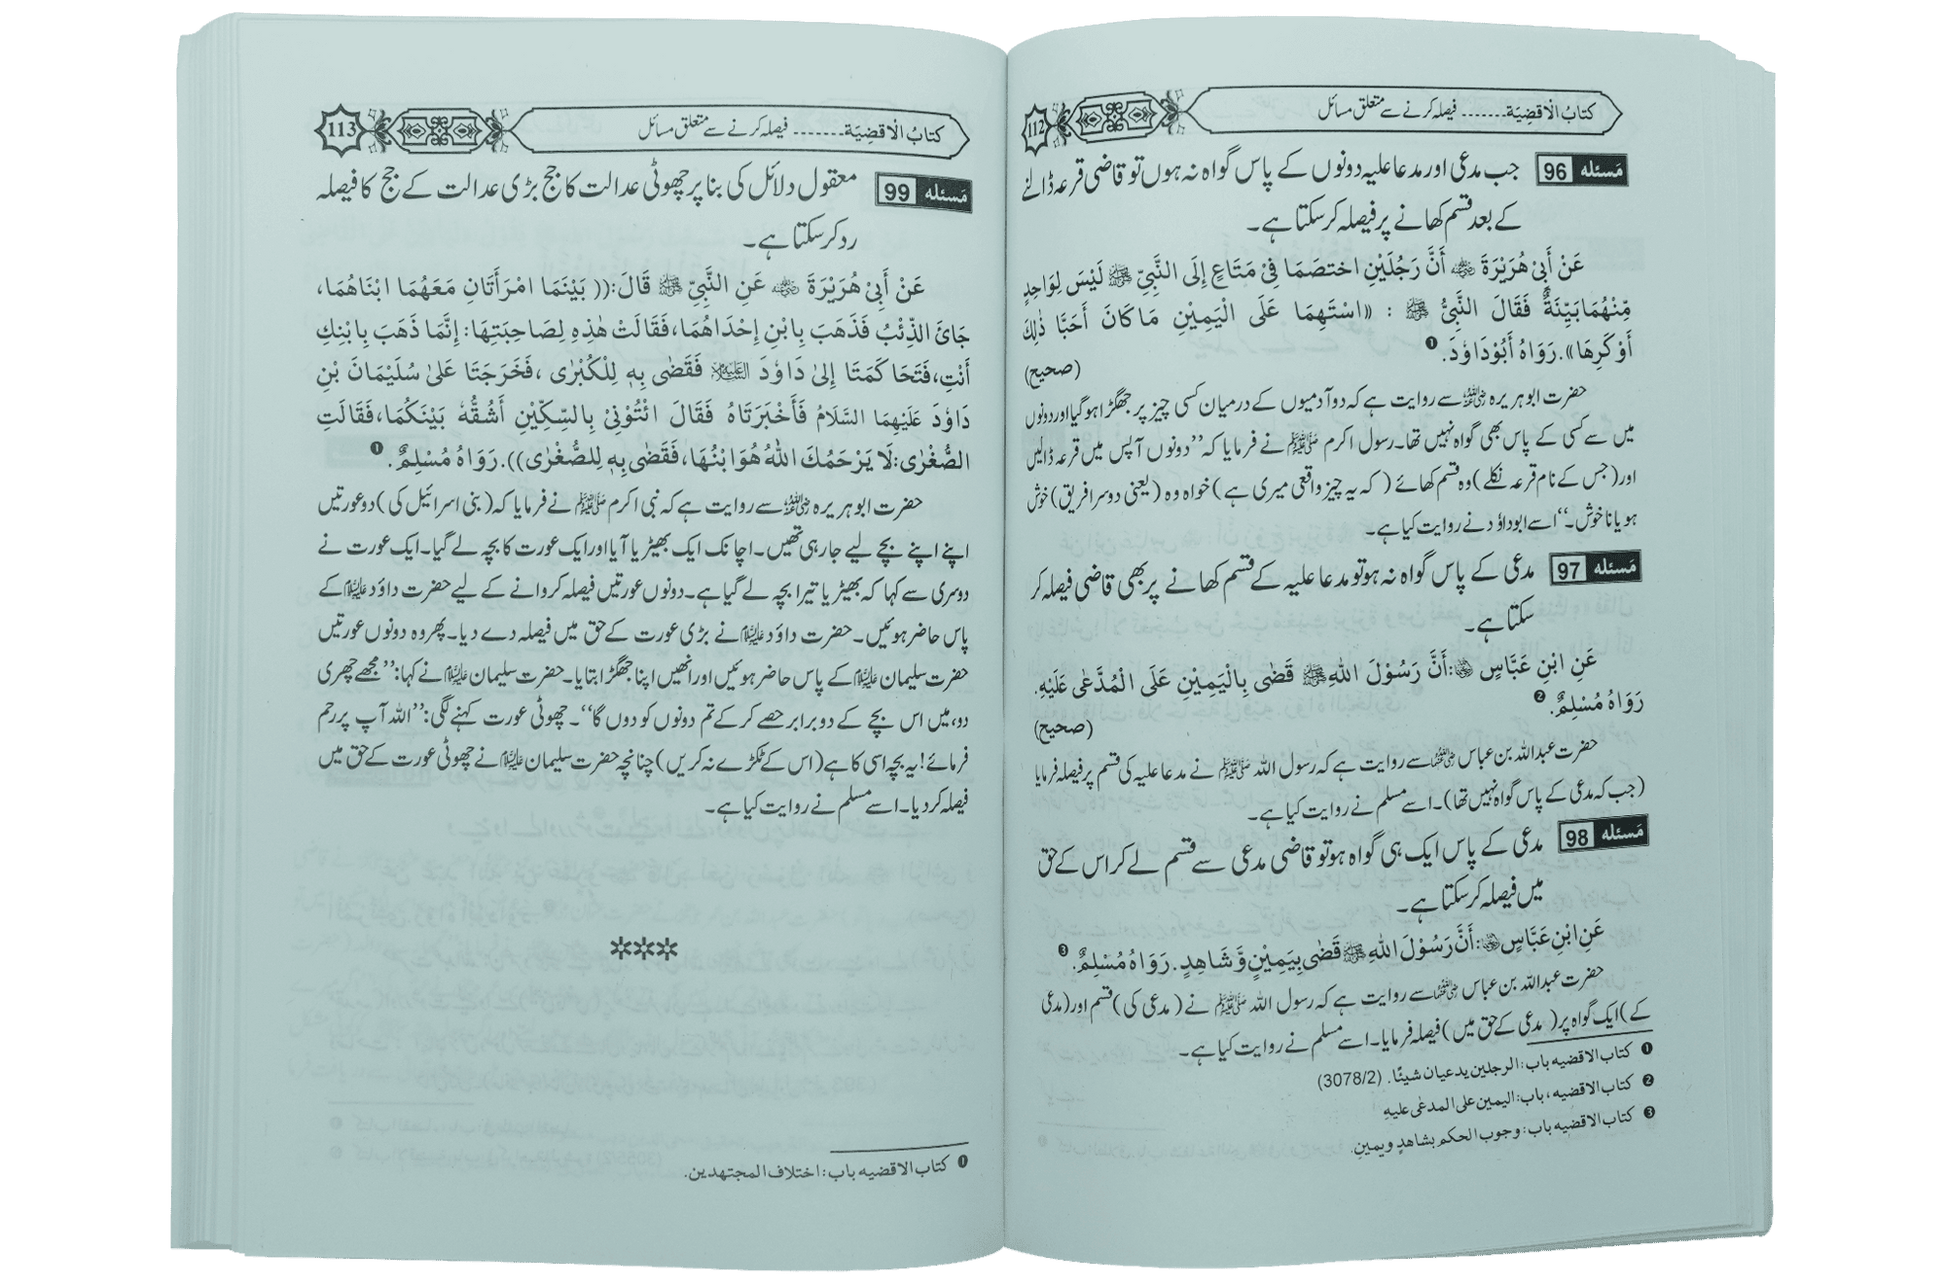 كتابُ الْاقضِيَة....... فیصلہ کرنے سے متعلق مسائل 112
مَسئله 96 جب مدعی اور مدعا علیہ دونوں کے پاس گواہ نہ ہوں تو قاضی قرعہ ڈالنے
کے بعد قسم کھانے پر فیصلہ کر سکتا ہے۔
عَنْ أَبِيْ هُرَيْرَةَ ؓ أَنَّ رَجُلَيْنِ اخْتَصَمَا فِيْ مَتَاعٍ إِلَى النَّبِيِّ ﷺ لَيْسَ لِوَاحِدٍ
مِّنْهُمَا بَيِّنَةٌ فَقَالَ النَّبِيُّ ﷺ : «اسْتَهِمَا عَلَى الْيَمِيْنِ مَا كَانَ أَحَبَّا ذٰلِكَ
أَوْ كَرِهَا». رَوَاهُ أَبُوْدَاوٗدَ. ❶
(صحیح)
حضرت ابو ہریرہ ؓ سے روایت ہے کہ دو آدمیوں کے درمیان کسی چیز پر جھگڑا ہو گیا اور دونوں
میں سے کسی کے پاس بھی گواہ نہیں تھا۔ رسول اکرم ﷺ نے فرمایا کہ ’’دونوں آپس میں قرعہ ڈالیں
اور (جس کے نام قرعہ نکلے) وہ قسم کھائے (کہ یہ چیز واقعی میری ہے) خواہ وہ (یعنی دوسرا فریق) خوش
ہو یا ناخوش۔‘‘ اسے ابوداؤد نے روایت کیا ہے۔
مَسئله 97 مدعی کے پاس گواہ نہ ہو تو مدعا علیہ کے قسم کھانے پر بھی قاضی فیصلہ کر
سکتا ہے۔
عَنِ ابْنِ عَبَّاسٍ ؓ: أَنَّ رَسُوْلَ اللهِ ﷺ قَضٰى بِالْيَمِيْنِ عَلَى الْمُدَّعٰى عَلَيْهِ.
رَوَاهُ مُسْلِمٌ. ❷
(صحیح)
حضرت عبداللہ بن عباس ؓ سے روایت ہے کہ رسول اللہ ﷺ نے مدعا علیہ کی قسم پر فیصلہ فرمایا
(جب کہ مدعی کے پاس گواہ نہیں تھا)۔ اسے مسلم نے روایت کیا ہے۔
مَسئله 98 مدعی کے پاس ایک ہی گواہ ہو تو قاضی مدعی سے قسم لے کر اس کے حق
میں فیصلہ کر سکتا ہے۔
عَنِ ابْنِ عَبَّاسٍ ؓ: أَنَّ رَسُوْلَ اللهِ ﷺ قَضٰى بِيَمِيْنٍ وَّ شَاهِدٍ. رَوَاهُ مُسْلِمٌ. ❸
حضرت عبداللہ بن عباس ؓ سے روایت ہے کہ رسول اللہ ﷺ نے (مدعی کی) قسم اور (مدعی
کے) ایک گواہ پر (مدعی کے حق میں) فیصلہ فرمایا۔ اسے مسلم نے روایت کیا ہے۔
❶ كتاب الاقضيه باب: الرجلين يدعيان شيئًا. (3078/2)
❷ كتاب الاقضيه، باب: اليمين على المدعى عليهِ
❸ كتاب الاقضيه باب: وجوب الحكم بشاهدٍ ويمينٍ.
كتابُ الْاقضِيَة....... فیصلہ کرنے سے متعلق مسائل 113
مَسئله 99 معقول دلائل کی بنا پر چھوٹی عدالت کا جج بڑی عدالت کے جج کا فیصلہ
رد کر سکتا ہے۔
عَنْ أَبِيْ هُرَيْرَةَ ؓ عَنِ النَّبِيِّ ﷺ قَالَ: (( بَيْنَمَا امْرَأَتَانِ مَعَهُمَا ابْنَاهُمَا،
جَائَ الذِّئْبُ فَذَهَبَ بِابْنِ إِحْدَاهُمَا، فَقَالَتْ هٰذِهِ لِصَاحِبَتِهَا: إِنَّمَا ذَهَبَ بِابْنِكِ
أَنْتِ، فَتَحَاكَمَتَا إِلىٰ دَاوٗدَ عَلَيْهِ السَّلَامُ فَقَضٰى بِهٖ لِلْكُبْرٰى، فَخَرَجَتَا عَلىٰ سُلَيْمَانَ بْنِ
دَاوٗدَ عَلَيْهِمَا السَّلَامُ فَأَخْبَرَتَاهُ فَقَالَ ائْتُوْنِيْ بِالسِّكِّيْنِ أَشُقُّهٗ بَيْنَكُمَا، فَقَالَتِ
الصُّغْرٰى: لَا يَرْحَمُكَ اللهُ هُوَ ابْنُهَا، فَقَضٰى بِهٖ لِلصُّغْرٰى)). رَوَاهُ مُسْلِمٌ. ❶
حضرت ابو ہریرہ ؓ سے روایت ہے کہ نبی اکرم ﷺ نے فرمایا کہ (بنی اسرائیل کی) دو عورتیں
اپنے اپنے بچے لیے جا رہی تھیں۔ اچانک ایک بھیڑیا آیا اور ایک عورت کا بچہ لے گیا۔ ایک عورت نے
دوسری سے کہا کہ بھیڑیا تیرا بچہ لے گیا ہے۔ دونوں عورتیں فیصلہ کروانے کے لیے حضرت داؤد علیہ السلام کے
پاس حاضر ہوئیں۔ حضرت داؤد علیہ السلام نے بڑی عورت کے حق میں فیصلہ دے دیا۔ پھر وہ دونوں عورتیں
حضرت سلیمان علیہ السلام کے پاس حاضر ہوئیں اور انھیں اپنا جھگڑا بتایا۔ حضرت سلیمان علیہ السلام نے کہا: ’’مجھے چھری
دو، میں اس بچے کے دو برابر حصے کر کے تم دونوں کو دوں گا‘‘۔ چھوٹی عورت کہنے لگی: ’’اللہ آپ پر رحم
فرمائے! یہ بچہ اسی کا ہے (اس کے ٹکڑے نہ کریں) چنانچہ حضرت سلیمان علیہ السلام نے چھوٹی عورت کے حق میں
فیصلہ کر دیا۔ اسے مسلم نے روایت کیا ہے۔
❶ كتاب الاقضيه باب: اختلاف المجتهدين.